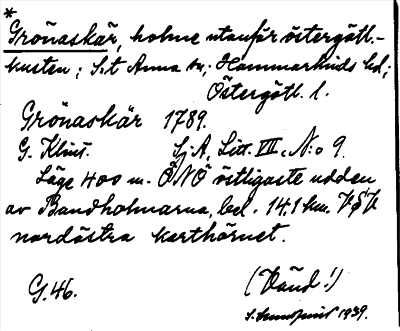 *
Grönaskär, holme utanför östergötl.-
kusten; S:t Anna sn; Hammarkinds hd;
Östergötl. l.
Grönaskär 1789.
G. Klint. Sj.A, Litt. VIII, N:o 9.
Läge 400 m. ÖNÖ östligaste udden
av Bandholmarna, bel. 14.1 km. VSV
nordöstra karthörnet.
G.46. (Vänd!)
1939.